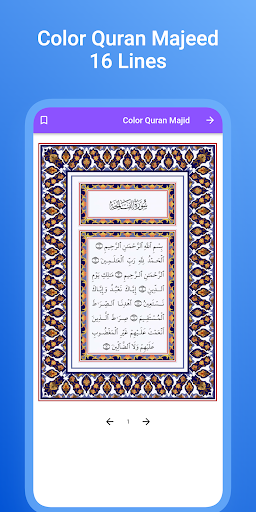 Color Quran Majeed
16 Lines
Color Quran Majid
سُورَةُ الْفَاتِحَةِ
بِسْمِ اللَّهِ الرَّحْمَٰنِ الرَّحِيمِ ۝
الْحَمْدُ لِلَّهِ رَبِّ الْعَالَمِينَ ۝
الرَّحْمَٰنِ الرَّحِيمِ ۝ مَالِكِ يَوْمِ
الدِّينِ ۝ إِيَّاكَ نَعْبُدُ وَإِيَّاكَ
نَسْتَعِينُ ۝ اهْدِنَا الصِّرَاطَ
الْمُسْتَقِيمَ ۝ صِرَاطَ الَّذِينَ
أَنْعَمْتَ عَلَيْهِمْ غَيْرِ الْمَغْضُوبِ
عَلَيْهِمْ وَلَا الضَّالِّينَ ۝
1